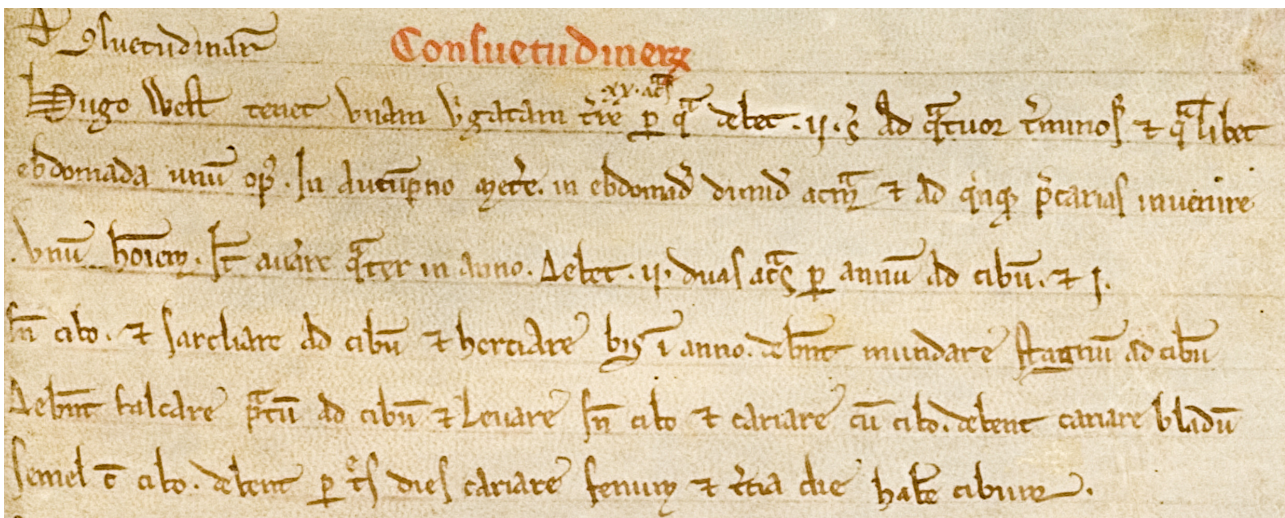 Consuetudinar̄ Consuetudinerꝝ
Hugo West tenet vnam v̓gatam t̓re xv. acᵃs ꝑ qᵃ debet .ii. s̓ Ad qᵃtuor t̓minos ⁊ qᵃlibet
ebdomada unū op̄ . In Autūpno met̓e. in ebdomad̓ dimid̓ acrā ⁊ ad qⁱnqꝫ p̓carias inuenire
vnū hōiem. It̄ au̓are qᵃter in anno. debet .ii. duas acᵃs ꝑ annū ad cibū. ⁊ I.
sn̄ cibo. ⁊ sarcliare ad cibū ⁊ herciare bis ī anno. debn̄t mundare stagnū ad cibū
debn̄t falcare pᵃtū ad cibū ⁊ Leuare sn̄ cibo ⁊ cariare cū cibo. debent cariare bladū
semel c̄ cibo. debent ꝑ t̓s dies cariare fenum ⁊ t̓cia die hab̄e cibum.